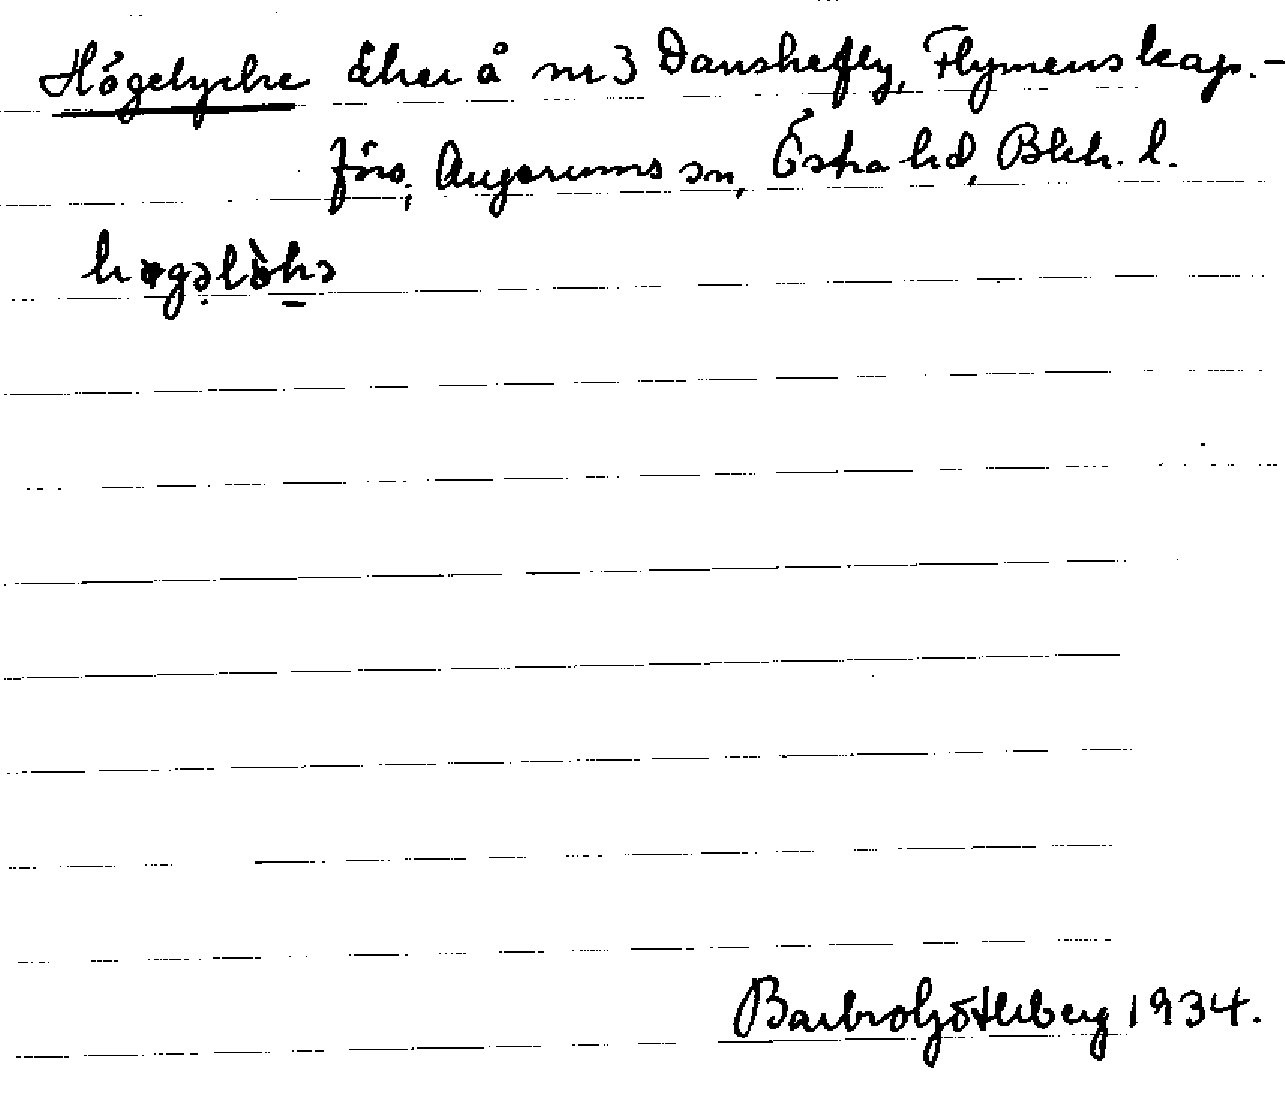 Högelycke åker å nr 3 Danskefly, Flymens kap.-
förs, Augerums sn, Östra hd, Blek. l.
høgəlỳkə
Barbro Götherberg 1934.